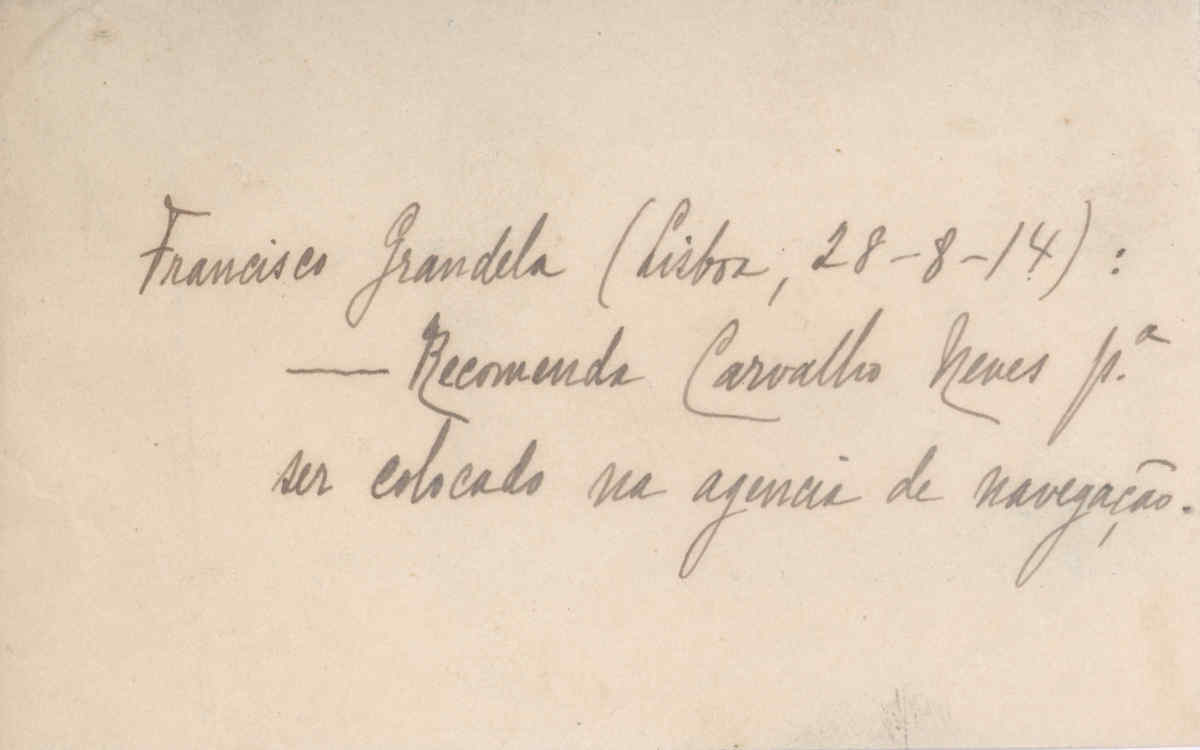 Francisco Grandela (Lisboa, 28-8-14):
— Recomenda Carvalho Neves p.ª
ser colocado na agencia de navegação.